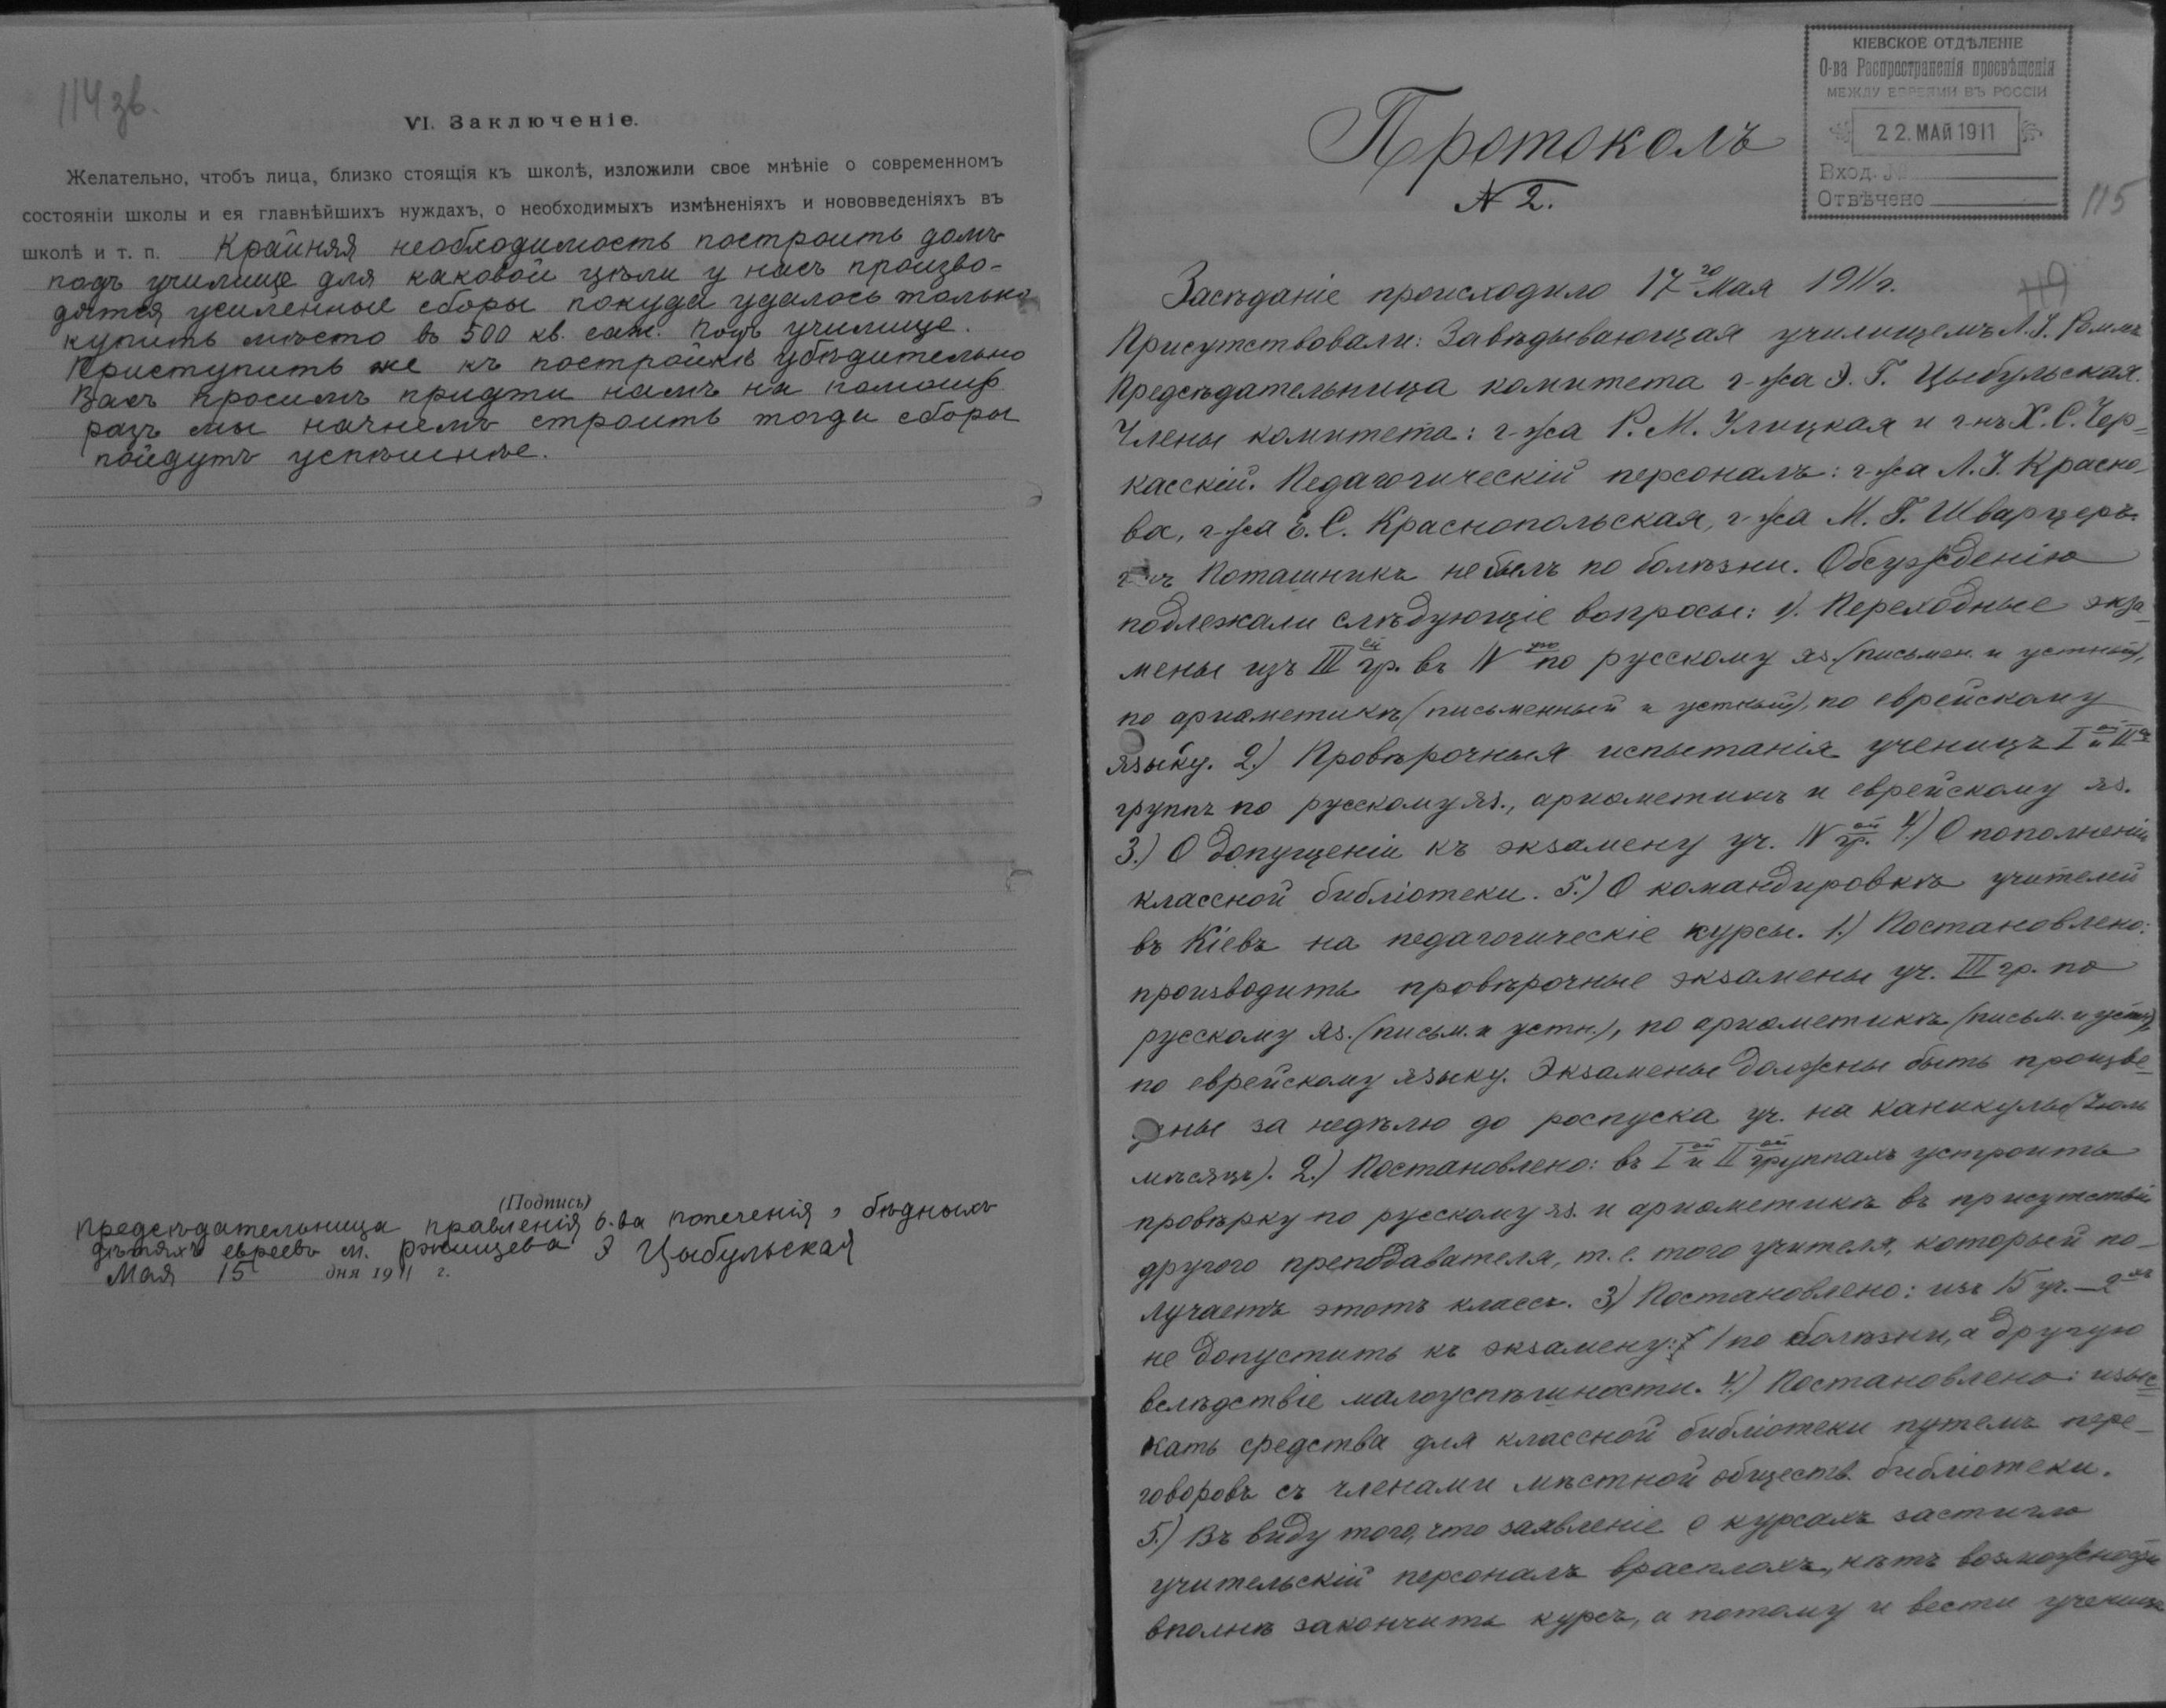 114 зв.
VI. Заключеніе.
Желательно, чтобъ лица, близко стоящія къ школѣ, изложили свое мнѣніе о современномъ
состояніи школы и ея главнѣйшихъ нуждахъ, о необходимыхъ измѣненіяхъ и нововведеніяхъ въ
школѣ и т. п. Крайняя необходимость построить домъ
подъ училище для каковой цѣли у насъ произво-
дятся усиленные сборы покуда удалось только
купить мѣсто въ 500 кв. саж. подъ училище.
Приступить же къ постройкѣ убѣдительно
Васъ просимъ придти намъ на помощь
разъ мы начнемъ строить тогда сборы
пойдутъ успѣшнѣе.
(Подпись)
Предсѣдательница правленія о-ва попеченія о бѣдныхъ
дѣтяхъ евреевъ м. Ржищева Э Цыбульская
Мая 15 дня 1911 г.
КІЕВСКОЕ ОТДѢЛЕНІЕ
О-ва Распространенія просвѣщенія
МЕЖДУ ЕВРЕЯМИ ВЪ РОССІИ
22. МАЙ 1911
Вход. №
Отвѣчено
115
Протоколъ
№ 2.
119
Засѣданіе происходило 17го Мая 1911 г.
Присутствовали: Завѣдывающая училищемъ Л. І. Роммъ
Предсѣдательница комитета г-жа Э. Г. Цыбульская.
Члены комитета: г-жа Р. М. Улицкая и г-нъ Х. С. Чер-
касскій. Педагогическій персоналъ: г-жа Л. І. Красно-
ва, г-жа Е. С. Краснопольская, г-жа М. Г. Шварцеръ.
г-нъ Поташникъ не былъ по болѣзни. Обсужденію
подлежали слѣдующіе вопросы: 1). Переходные экза-
мены изъ III ей гр. въ IV ую по русскому яз. (письмен. и устный),
по ариѳметикѣ (письменный и устный), по еврейскому
языку. 2.) Провѣрочныя испытанія ученицъ I ой и II ой
группъ по русскому яз., ариѳметикѣ и еврейскому яз.
3.) О допущеніи къ экзамену уч. IV ой гр. 4.) О пополненіи
классной библіотеки. 5.) О командировкѣ учителей
въ Кіевъ на педагогическіе курсы. 1.) Постановлено:
производить провѣрочные экзамены уч. III гр. по
русскому яз. (письм. и устн.), по ариѳметикѣ (письм. и устн.),
по еврейскому языку. Экзамены должны быть произве-
дены за недѣлю до роспуска уч. на каникулы (Іюль
мѣсяцъ). 2.) Постановлено: въ I ой и II ой группахъ устроить
провѣрку по русскому яз. и ариѳметикѣ въ присутствіи
другого преподавателя, т. е. того учителя, который по-
лучаетъ этотъ классъ. 3) Постановлено: изъ 15 уч. — 2хъ
не допустить къ экзамену: 1 по болѣзни, а другую
вслѣдствіе малоуспѣшности. 4.) Постановлено: изыс-
кать средства для классной библіотеки путемъ пере-
говоровъ съ членами мѣстной обществ. библіотеки.
5.) Въ виду того, что заявленіе о курсахъ застигло
учительскій персоналъ врасплохъ, нѣтъ возможности
вполнѣ закончить курсъ, а потому и вести ученицъ